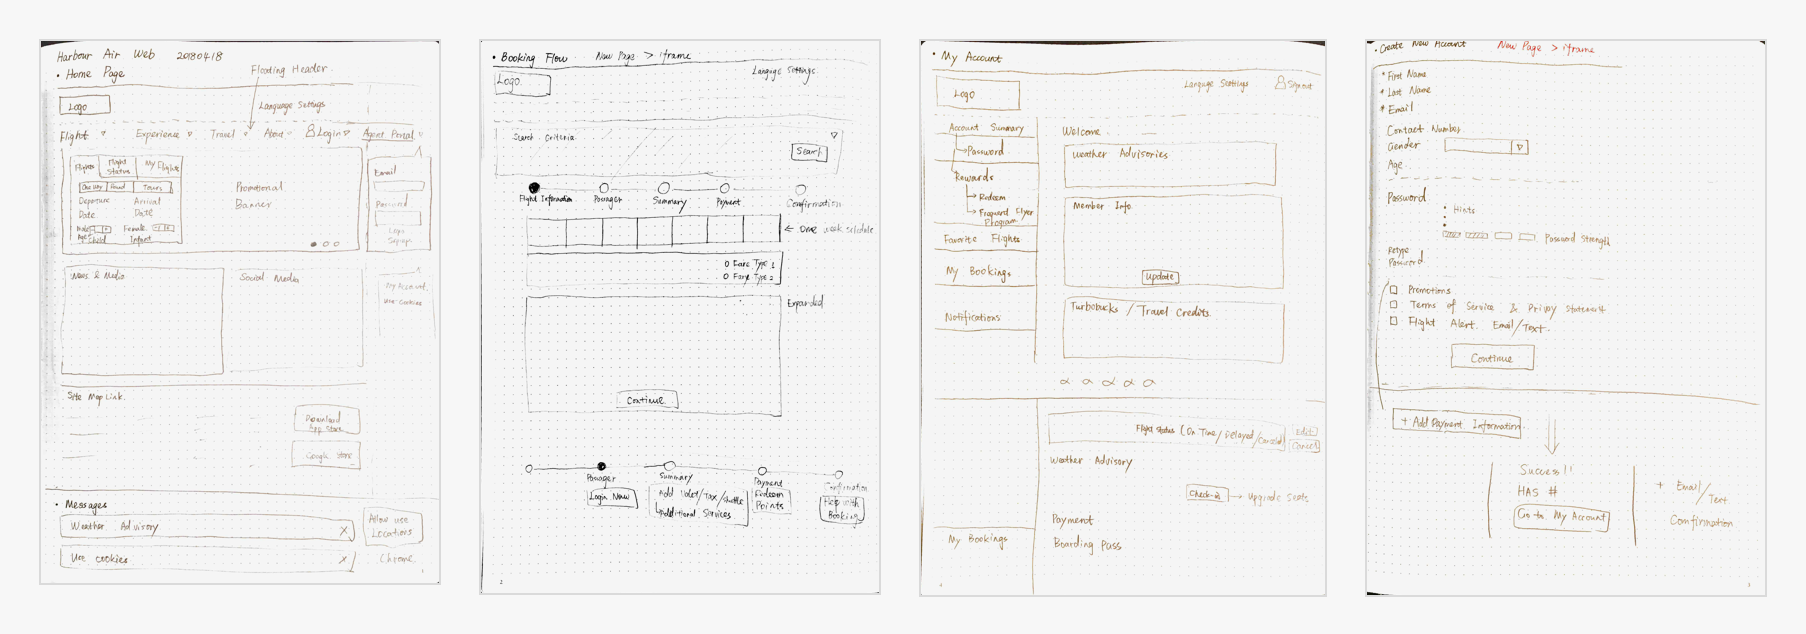 Harbour Air Web 20180418
• Home Page
Floating Header
Logo
Language Settings
Flight
Experience
Travel
About
Login
Agent Portal
Flights
Flight Status
My Flights
One Way
Round
Tours
Departure
Arrival
Date
Date
Male
Female
Child
Infant
Promotional
Banner
Email
Password
Login
Sign up
News & Media
Social Media
My Account
Use cookies
Site Map Link
Download
App Store
Google Store
• Messages
Weather Advisory
X
Use cookies
X
Allow use
Locations
Chrome
1
• Booking Flow New Page > iframe
Logo
Languge Settings
Search Criteria
Search
Flight Information
Passager
Summary
Payment
Confirmation
← One week schdule
O Fare Type 1
O Fare Type 2
Expanded
Continue
Passager
Login Now
Summary
Add Valet/Tax/shuttle
Additional Services
Payment
Redeem
Points
Confirmation
Help with
Booking
2
• My Account
Logo
Language Settings
Sign out
Account Summary
Password
Rewards
Redeem
Frequent Flyer
Program
Favorite Flights
My Bookings
Notifications
Welcome
Weather Advisories
Member Info
Update
Turbobucks / Travel Credits
Flight Status (On Time/Delayed/Cancled)
Edit
Cancel
Weather Advisory
Check-in → Upgrade Seats
Payment
Boarding Pass
My Bookings
4
• Create New Account New Page > iframe
* First Name
* Last Name
* Email
Contact Number
Gender
Age
Password
• Hints
Password Strength
Retype
Password
Promotions
Terms of Service & Privay Statement
Flight Alert. Email/Text.
Continue
+ Add Payment Information
Success!!
HAS #
Go to My Account
+ Email/Text
Confirmation
3